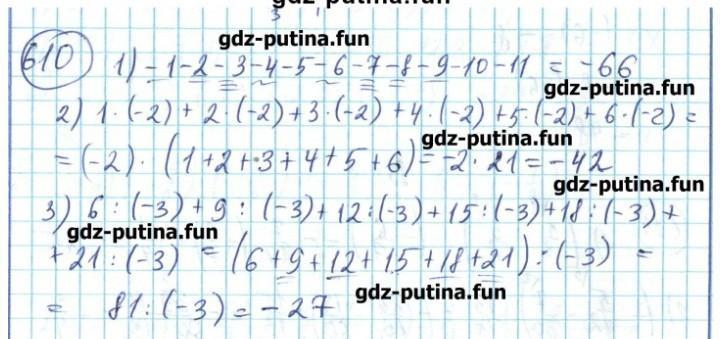 gdz-putina.fun
gdz-putina.fun
610 1) -1-2-3-4-5-6-7-8-9-10-11 = -66
gdz-putina.fun
2) 1·(-2) + 2·(-2)+3·(-2) +4·(-2)+5·(-2)+6·(-2) =
gdz-putina.fun
= (-2)·(1+2+3+4+5+6)=-2·21=-42
gdz-putina.fun
3) 6:(-3)+9:(-3)+12:(-3)+15:(-3)+18:(-3)+
gdz-putina.fun
+21:(-3) = (6+9+12+15+18+21):(-3) =
= 81:(-3)=-27
gdz-putina.fun